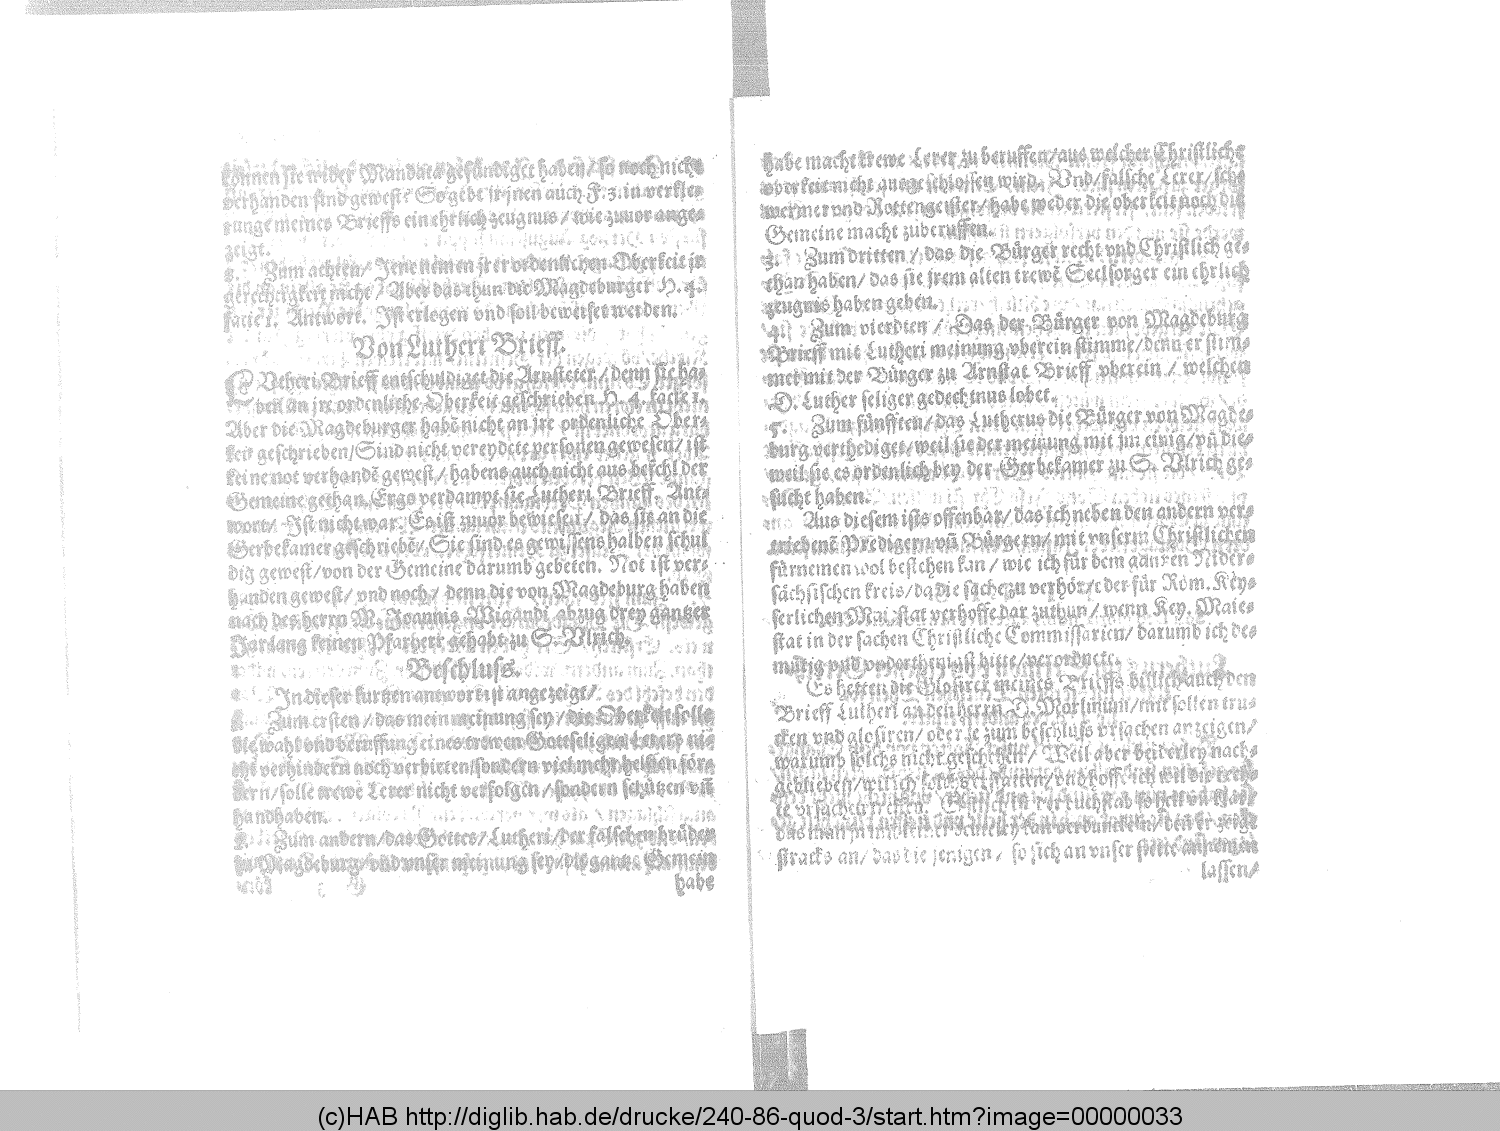 können sie wider Mandata gesündiget haben/ so noch nicht
verhanden sind gewest? So gebt jr jnen auch F. 3. in verkle⸗
runge meines Brieffs ein ehrlich zeugnus/ wie zuuor ange⸗
zeigt.
8. Zum achten/ Jene nemen jrer ordentlichen Oberkeit je
gerechtigkeit nicht/ Aber das thun die Magdeburger H. 4.
facie 1. Antwort. Ist erlogen vnd soll beweiset werden.
Von Lutheri Brieff.
Lutheri Brieff entschuldiget die Arnsteter/ denn sie ha⸗
ben an jre ordenliche Oberkeit geschrieben H. 4. facie 1.
Aber die Magdeburger habē nicht an jre ordenliche Ober⸗
keit geschrieben/ Sind nicht vereydete personen gewesen/ ist
keine not verhandē gewest/ habens auch nicht aus befehl der
Gemeine gethan, Ergo verdampt sie Lutheri Brieff. Ant⸗
wort/ Ist nicht war. Es ist zuuor bewiesen/ das sie an die
Gerbekamer geschriebē/ Sie sind es gewissens halben schul
dig gewest/ von der Gemeine darumb gebeten. Not ist ver⸗
handen gewest/ vnd noch/ denn die von Magdeburg haben
nach des herrn M. Joannis Wigandi abzug drey gantzer
Jarlang keinen Pfarherr gehabt zu S. Vlrich.
Beschluss.
In dieser kurtzen antwort ist angezeigt/
1. Zum ersten/ das mein meinung sey/ die Oberkeit solle
die wahl vnd beruffung eines trewen Gottseligen Lerers nic
cht verhindern noch verbieten/ sondern viel mehr helffen för⸗
dern/ solle trewe Lerer nicht verfolgen/ sondern schützen vñ
handhaben.
2. Zum andern/ das Gottes/ Lutheri/ der falschen brüder
zu Magdeburg/ vnd vnser meinung sey/ die gantze Gemein
habe
habe macht trewe Lerer zu beruffen/ aus welcher Christliche
oberkeit nicht ausgeschlossen wird. Vnd/ falsche Lerer/ sch⸗
wermer vnd Rottengeister/ habe weder die oberkeit noch die
Gemeine macht zuberuffen.
3. Zum dritten/ das die Bürger recht vnd Christlich ge⸗
than haben/ das sie jrem alten trewē Seelsorger ein ehrlich
zeugnis haben geben.
4. Zum vierdten/ Das der Bürger von Magdeburg
Brieff mit Lutheri meinung vberein stimme/ denn er stim⸗
met mit der Bürger zu Arnstat Brieff vberein/ welchen
D. Luther seliger gedechtnus lobet.
5. Zum fünfften/ das Lutherus die Bürger von Magde⸗
burg verthediget/ weil sie der meinung mit jm einig/ vñ die⸗
weil sie es ordenlich bey der Gerbekamer zu S. Vlrich ge⸗
sücht haben.
Aus diesem ists offenbar/ das ich neben den andern ver⸗
triebenē Predigern vñ Bürgern/ mit vnserm Christlichem
fürnemen wol bestehen kan/ wie ich für dem gantzen Nider⸗
sächsischen kreis/ da die sache zu verhör/ oder für Röm. Key⸗
serlichen Maiestat verhoffe dar zuthun/ wenn Key. Maie⸗
stat in der sachen Christliche Commissarien/ darumb ich de⸗
mütig vnd vnderthenigst bitte/ verordnete.
Es hetten die Glosirer meines Brieffs billich auch den
Brieff Lutheri an den herrn D. Mörlinum/ mit sollen tru⸗
cken vnd glosiren/ oder je zum beschluss vrsachen anzeigen/
warumb solchs nicht geschehen/ Weil aber beiderley nach⸗
geblieben/ wil ich
das man
stracks an/ das die jenigen/ so sich an vnser stette
lassen/
(c)HAB http://diglib.hab.de/drucke/240-86-quod-3/start.htm?image=00000033